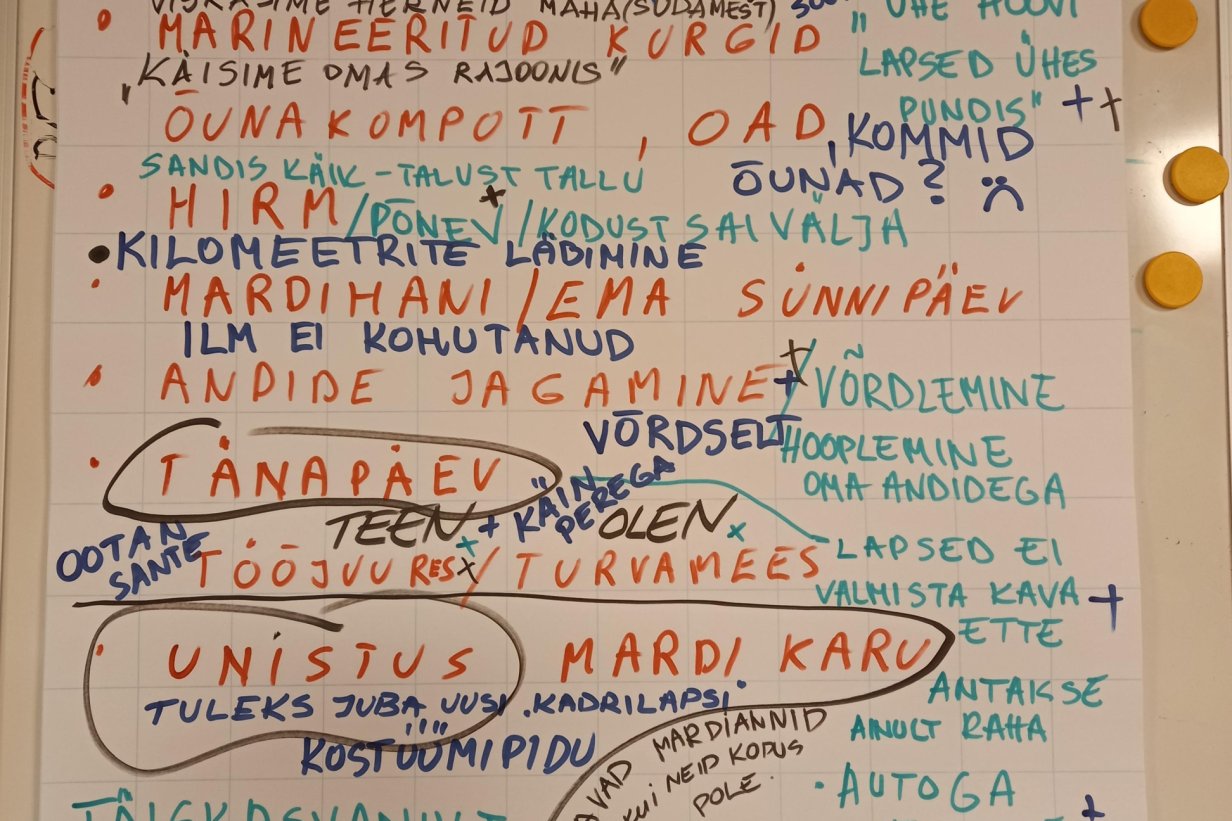 HERNEID MAHA (SÜDAMEST)
MARINEERITUD KURGID
"ÜHE HOOVI
LAPSED ÜHES
PUNDIS" ++
"KÄISIME OMAS RAJOONIS"
ÕUNAKOMPOTT, OAD, KOMMID
ÕUNAD?
SANDIS KÄIK - TALUST TALLU
HIRM/PÕNEV/KODUST SAI VÄLJA
KILOMEETRITE LÄBIMINE
MARDIHANI/EMA SÜNNIPÄEV
ILM EI KOHUTANUD
ANDIDE JAGAMINE + + /VÕRDLEMINE
VÕRDSELT
HOOPLEMINE
OMA ANDIDEGA
TÄNAPÄEV
TEEN + KÄIN PEREGA
OLEN x
OOTAN
SANTE
TÖÖJUURES/TURVAMEES
LAPSED EI
VALMISTA KAVA +
ETTE
UNISTUS MARDI KARU
TULEKS JUBA UUSI KADRILAPSI
KOSTÜÜMIPIDU
ANTAKSE
AINULT RAHA
MARDIANNID
KUI NEID KODUS
POLE.
AUTOGA +